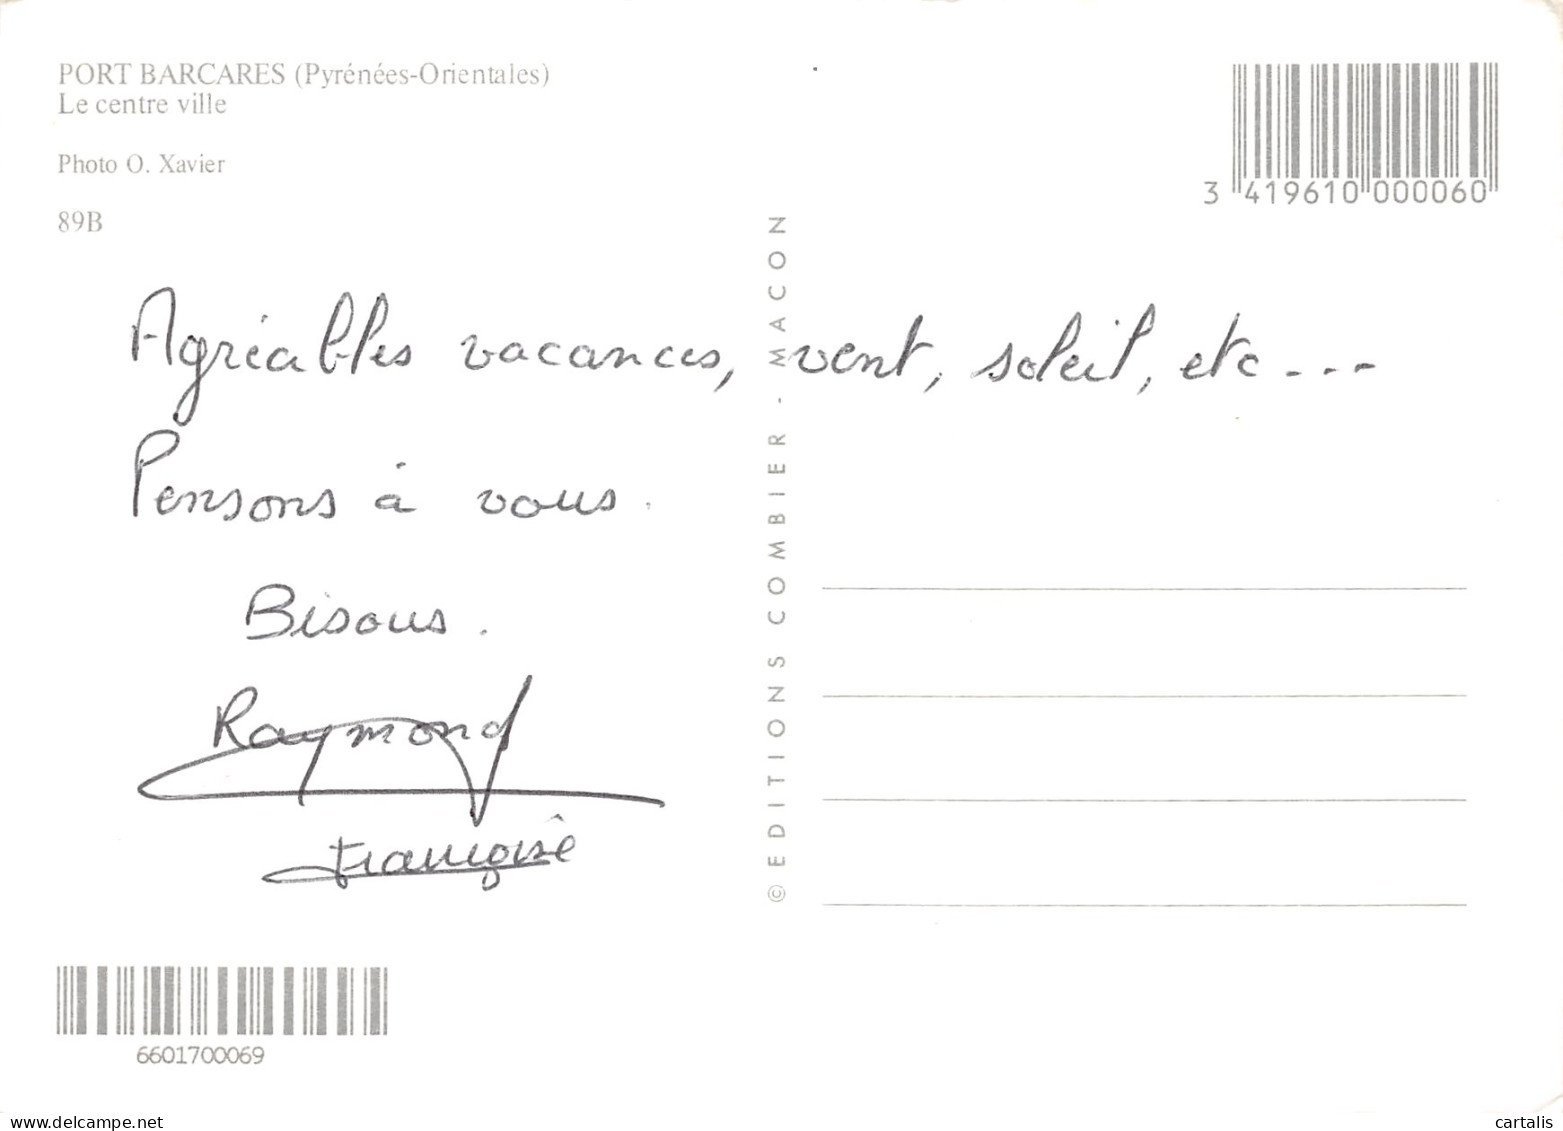 PORT BARCARES (Pyrénées-Orientales)
Le centre ville
Photo O. Xavier
89B
3 419610 000060
Agréables vacances, vent, soleil, etc ....
Pensons à vous.
Bisous.
Raymond
Françoise
© EDITIONS COMBIER - MACON
6601700069
www.delcampe.net
cartalis